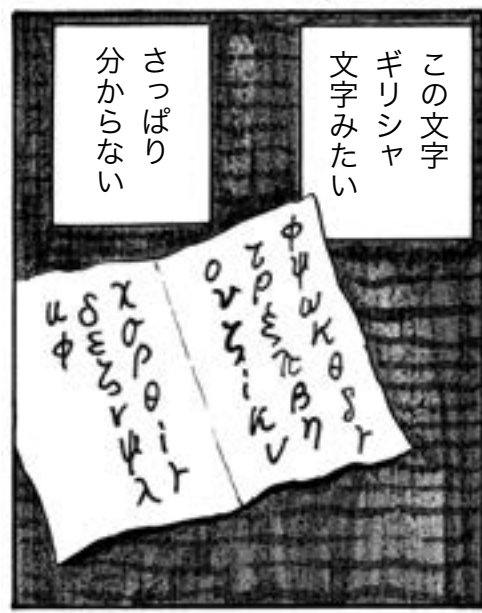 この文字
ギリシャ
文字みたい
さっぱり
分からない
φψωκθδγ
τρξπβη
ονζiκν
χσρθiγ
δεζνψλ
uφ